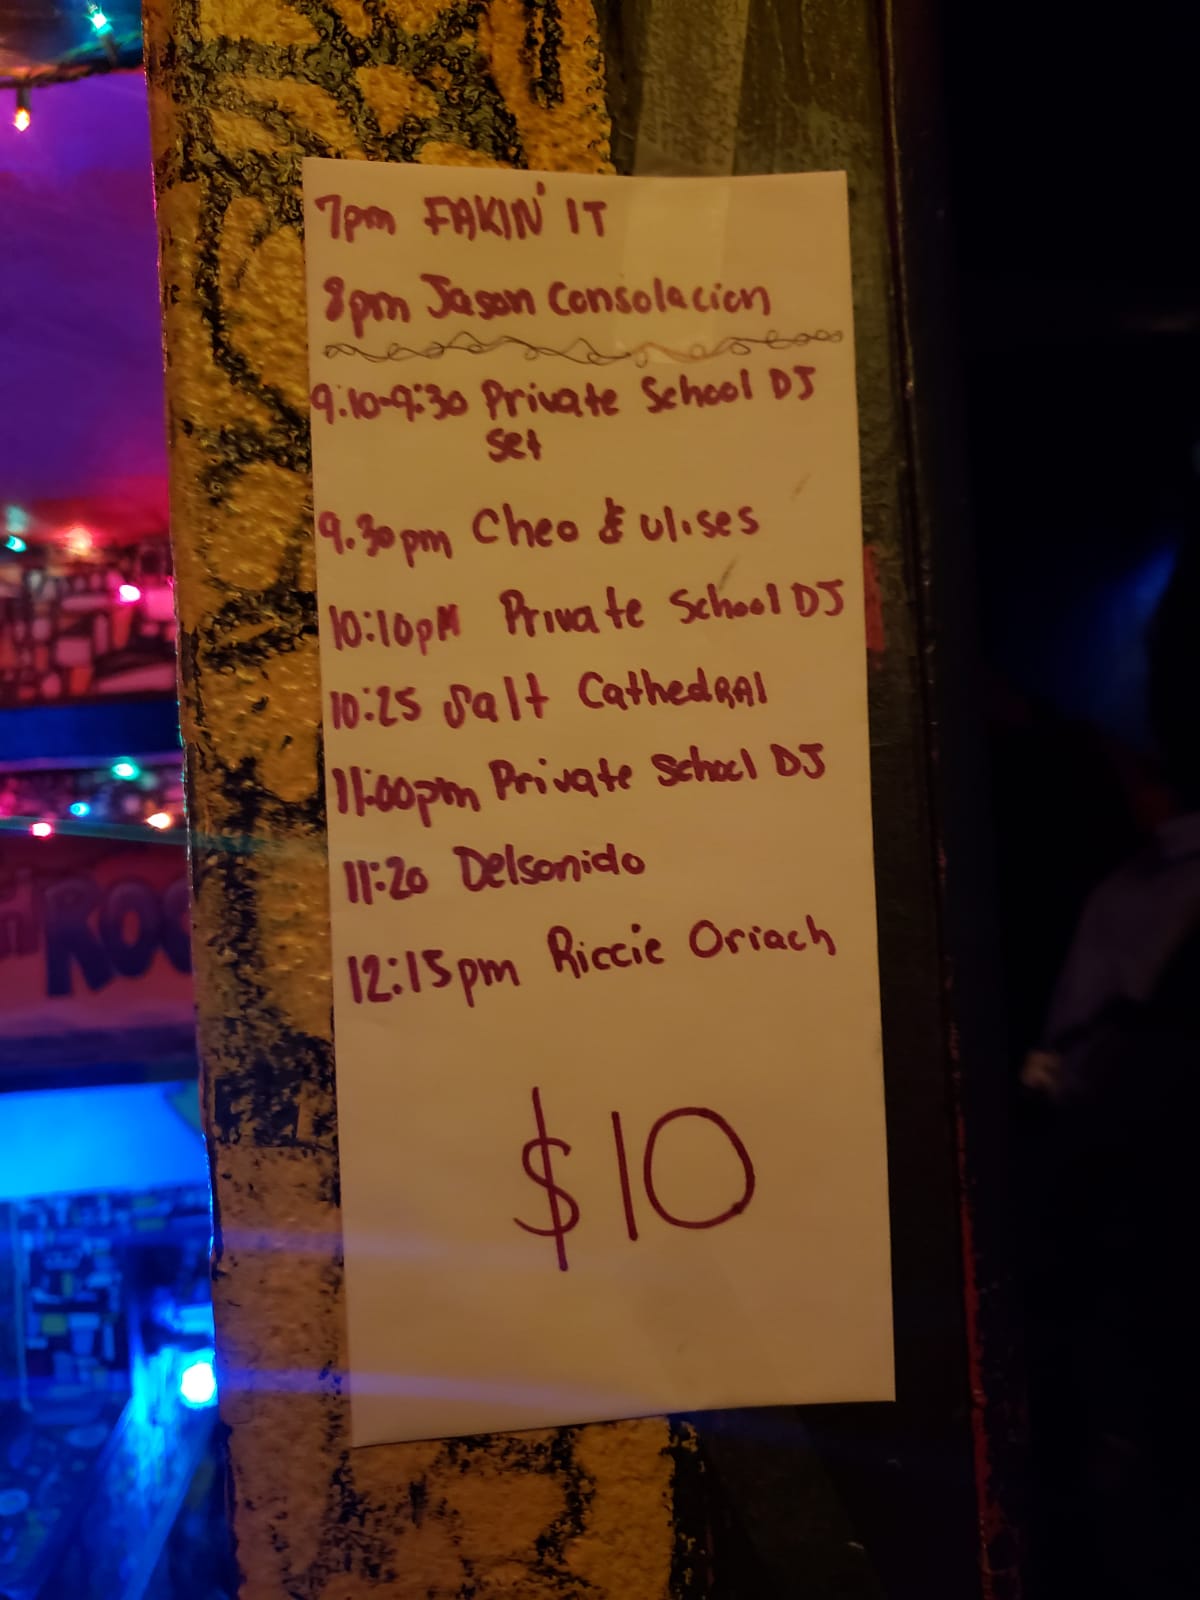 7pm FAKIN' IT
8pm Jason Consolacion
9:10-9:30 Private School DJ
Set
9:30pm Cheo & Ulises
10:10pM Private School DJ
10:25 Salt CathedRAl
11:00pm Private School DJ
11:20 Delsonido
12:15pm Riccie Oriach
$10
ROC